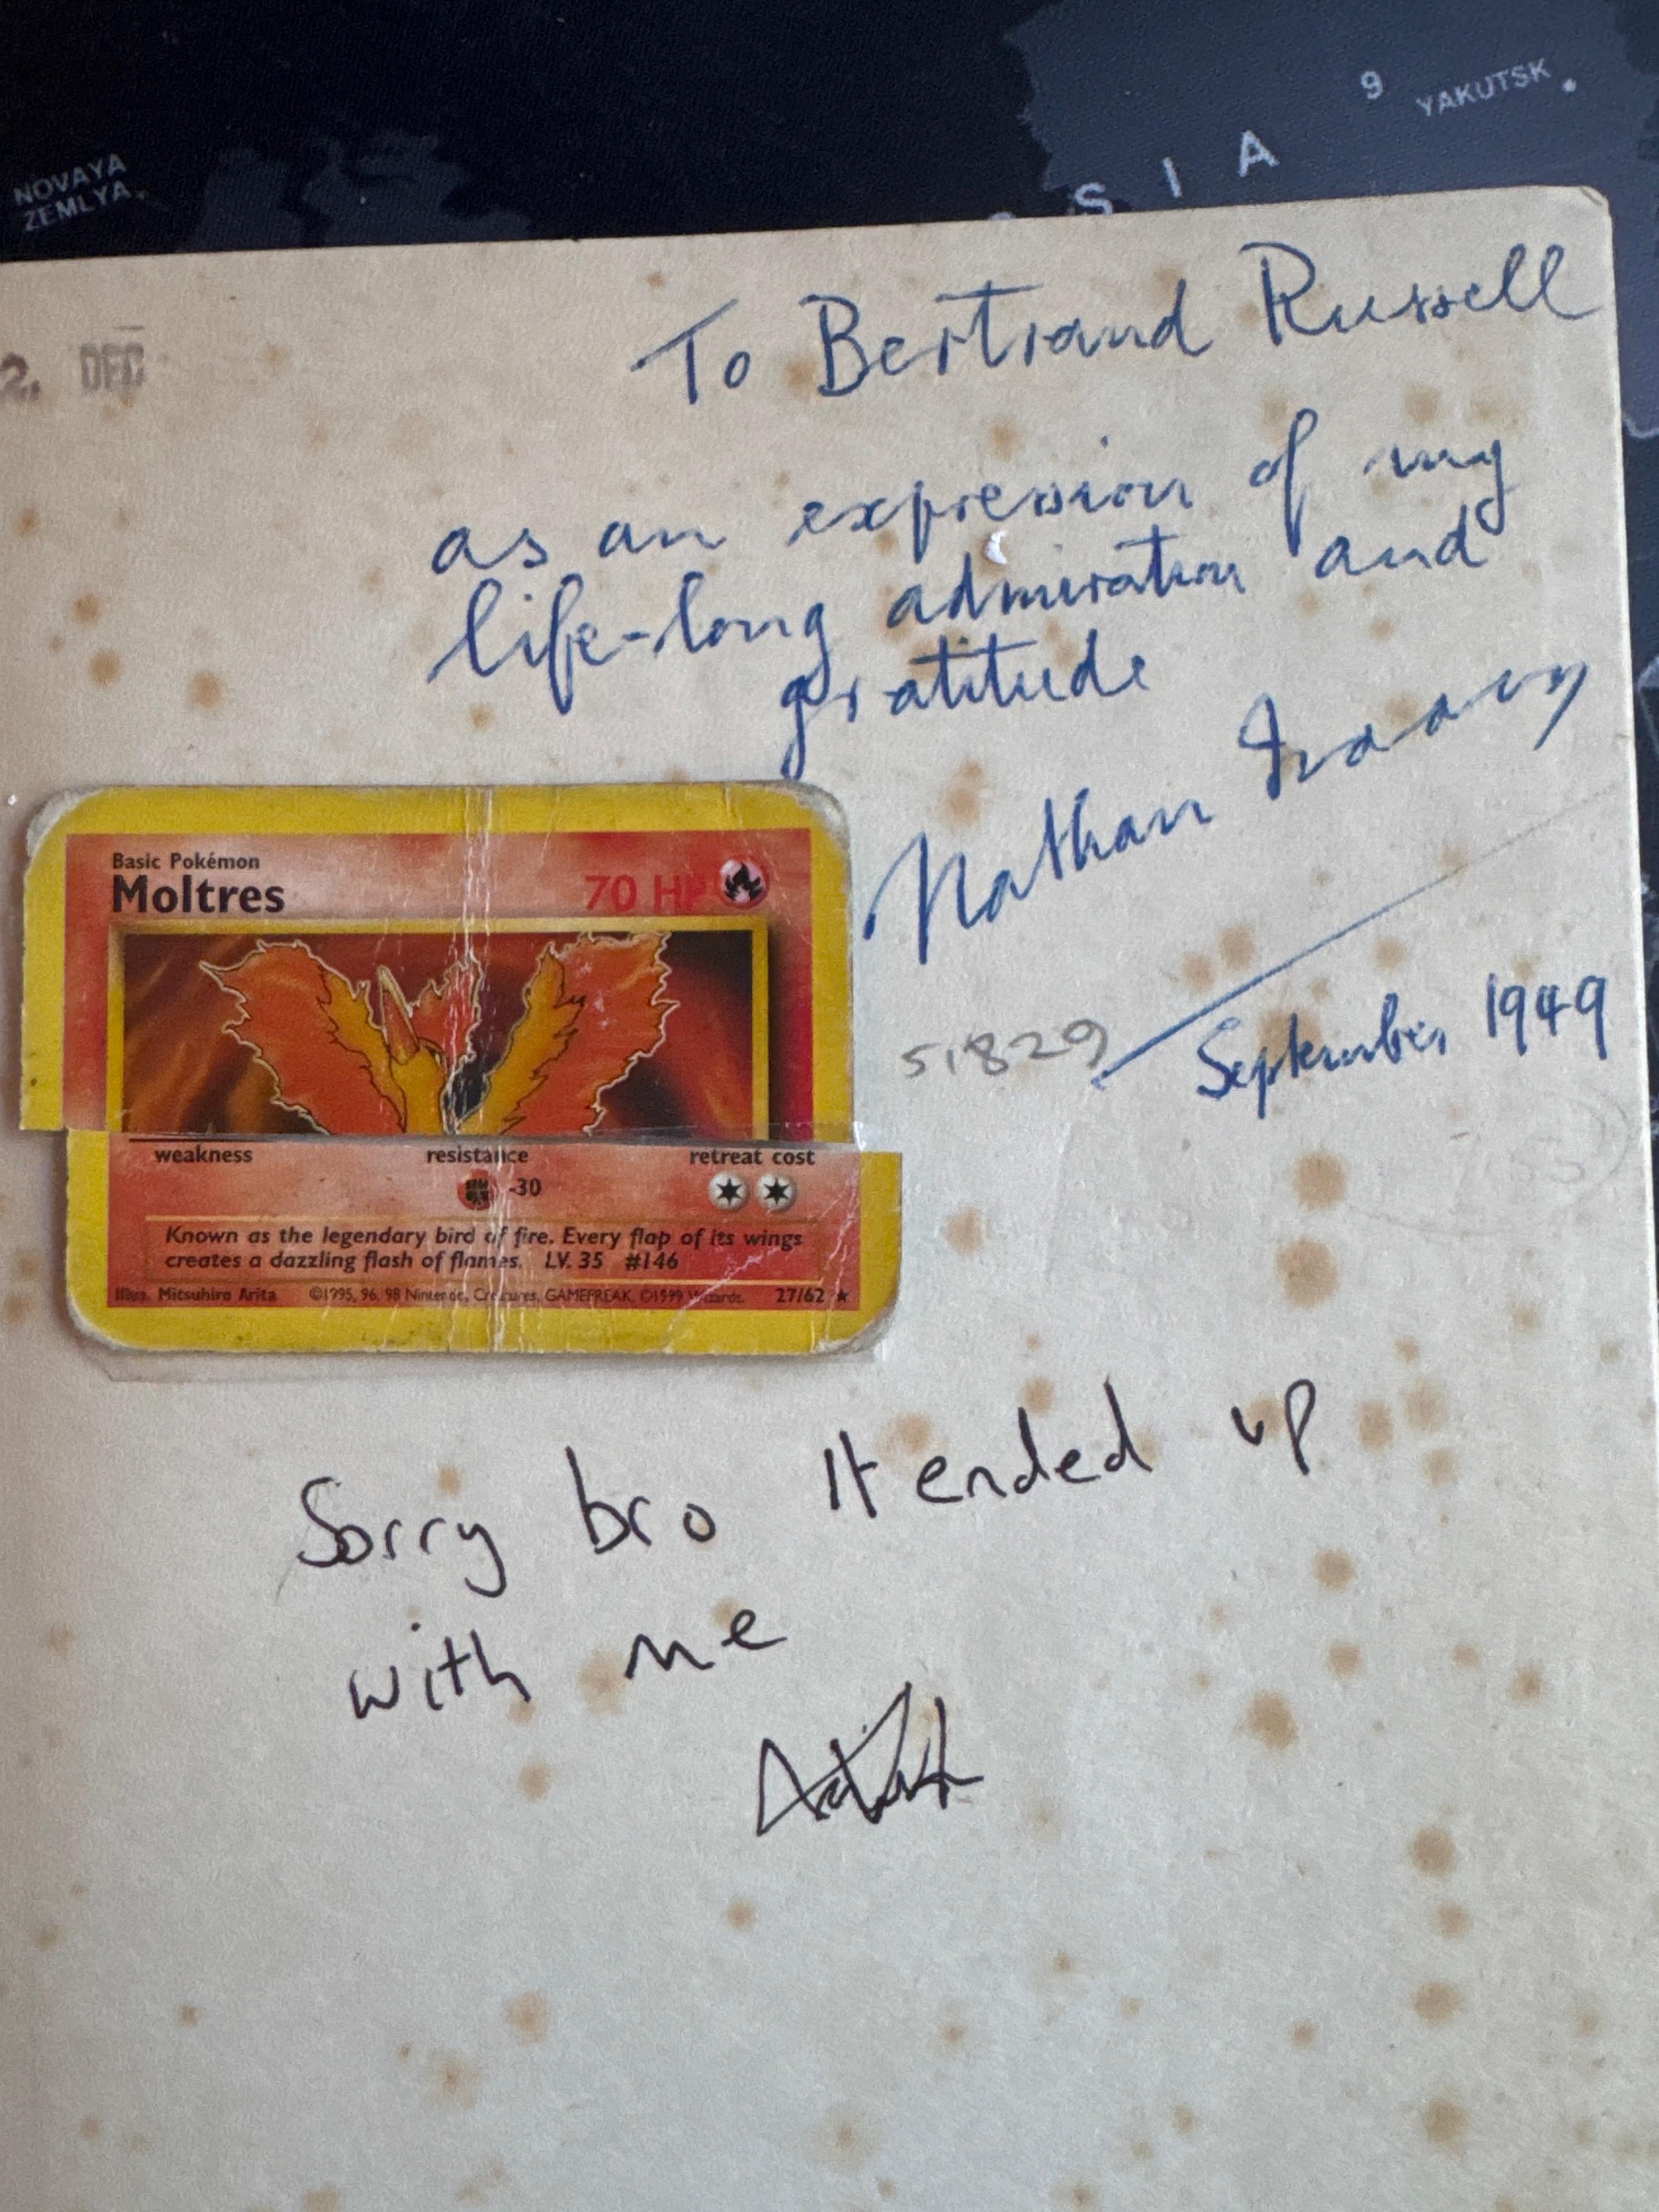 NOVAYA
ZEMLYA
9
YAKUTSK
S I A
2. DEC
To Bertrand Russell
as an expression of my
life-long admiration and
gratitude
Nathan Isaacs
September 1949
51829
Basic Pokémon
Moltres
70 HP
weakness resistance retreat cost
-30
Known as the legendary bird of fire. Every flap of its wings
creates a dazzling flash of flames. LV. 35 #146
Illus. Mitsuhiro Arita ©1995, 96, 98 Nintendo, Creatures, GAMEFREAK. ©1999 Wizards. 27/62
Sorry bro It ended up
with me